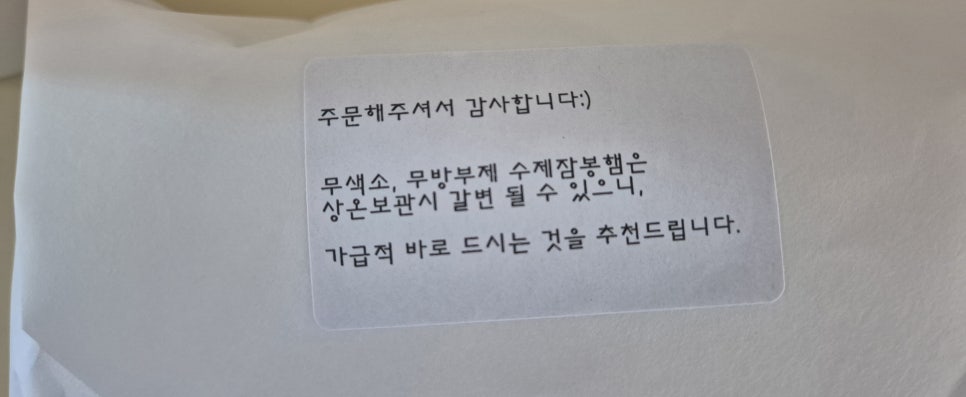 주문해주셔서 감사합니다:)
무색소, 무방부제 수제잠봉햄은
상온보관시 갈변 될 수 있으니,
가급적 바로 드시는 것을 추천드립니다.